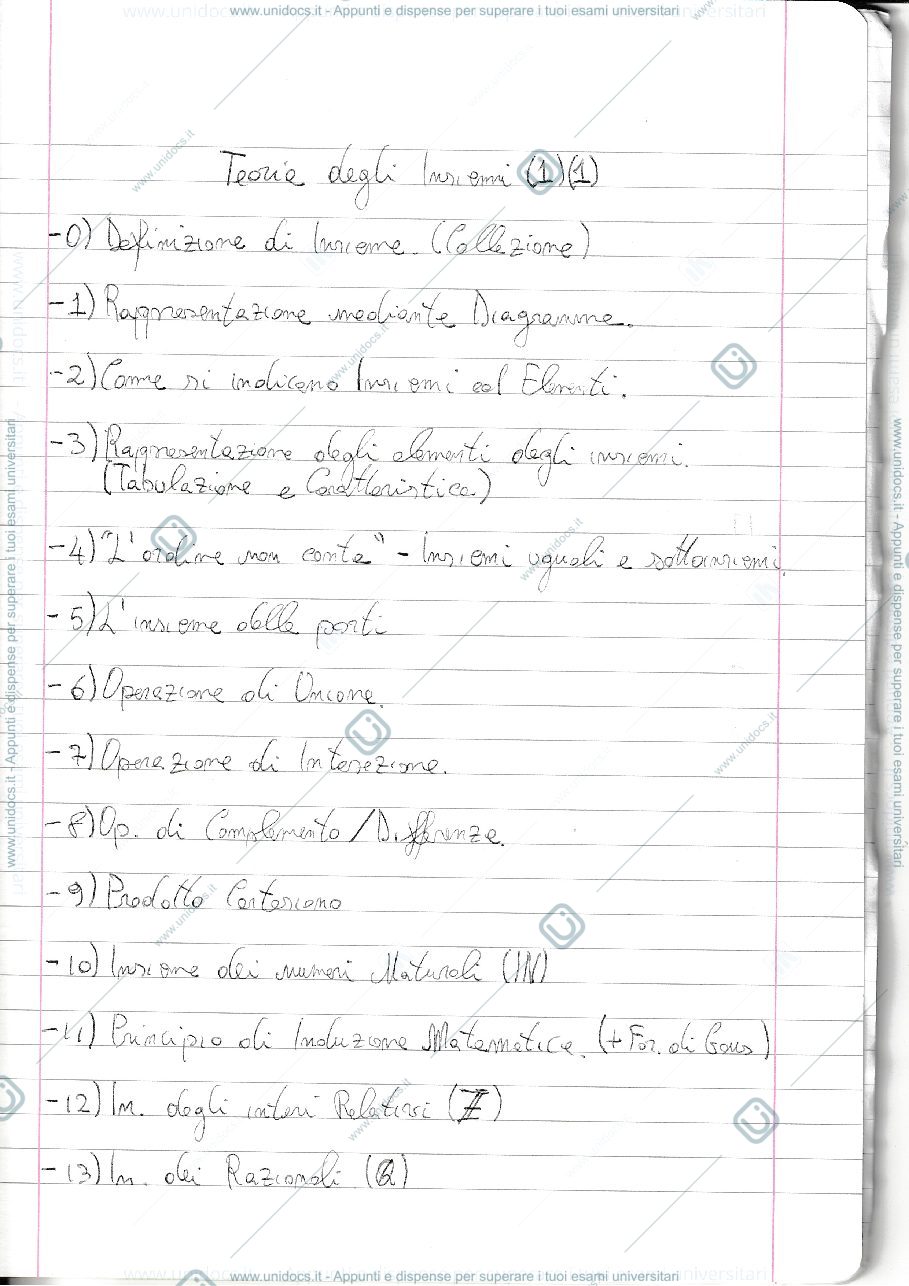 www.unidocs.it - Appunti e dispense per superare i tuoi esami universitari
Teoria degli Insiemi (1)(1)
-0) Definizione di Insieme. (Collezione)
-1) Rappresentazione mediante Diagramma.
-2) Come si indicano Insiemi ed Elementi.
-3) Rappresentazione degli elementi degli insiemi.
(Tabulazione e Caratteristica)
-4) "L'ordine non conta" - Insiemi uguali e sottoinsiemi.
-5) L'insieme delle parti
-6) Operazione di Unione.
-7) Operazione di Intersezione.
-8) Op. di Complemento / Differenza.
-9) Prodotto Cartesiano
-10) Insieme dei numeri Naturali (IN)
-11) Principio di Induzione Matematica. (+ For. di Gauss)
-12) In. degli interi Relativi (Z)
-13) In. dei Razionali (Q)
www.unidocs.it - Appunti e dispense per superare i tuoi esami universitari
www.unidocs.it - Appunti e dispense per superare i tuoi esami universitari
www.unidocs.it - Appunti e dispense per superare i tuoi esami universitari
www.unidocs.it
www.unidocs.it
www.unidocs.it
www.unidocs.it
www.unidocs.it
www.unidocs.it